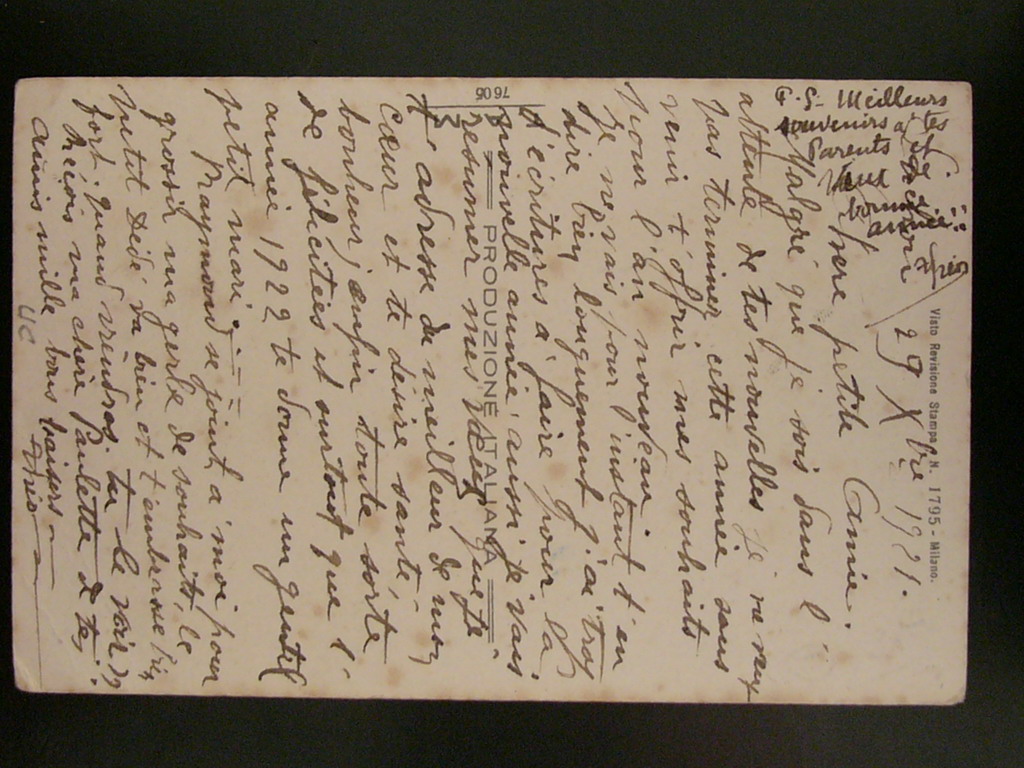 29 Xbre 1921.
Chère petite Amie.
Malgré que je sois dans l'
attente de tes nouvelles je ne veux
pas terminer cette année sans
venir t'offrir mes souhaits
pour l'an nouveau.
Je ne vais pour l'instant t'en
dire bien longuement j'ai trop
d'écritures à faire pour la
nouvelle année, aussi je vais
résumer mes vœux que je
t'adresse du meilleur de mon
cœur et te désire santé,
bonheur, enfin toute sorte
de félicitées et surtout que l'
année 1922 te donne un gentil
petit mari.
Raymond se joint à moi pour
grossir ma gerbe de souhaits, le
petit Dédé va bien et t'embrasse
fort, quand viendras tu le voir ??
Reçois ma chère Paulette de tes
amis mille bons baisers
G. S- Meilleurs
souvenirs à tes
Parents et
bonne
année!!
Visto Revisione Stampa N. 1795 - Milano.
PRODUZIONE ITALIANA
7605